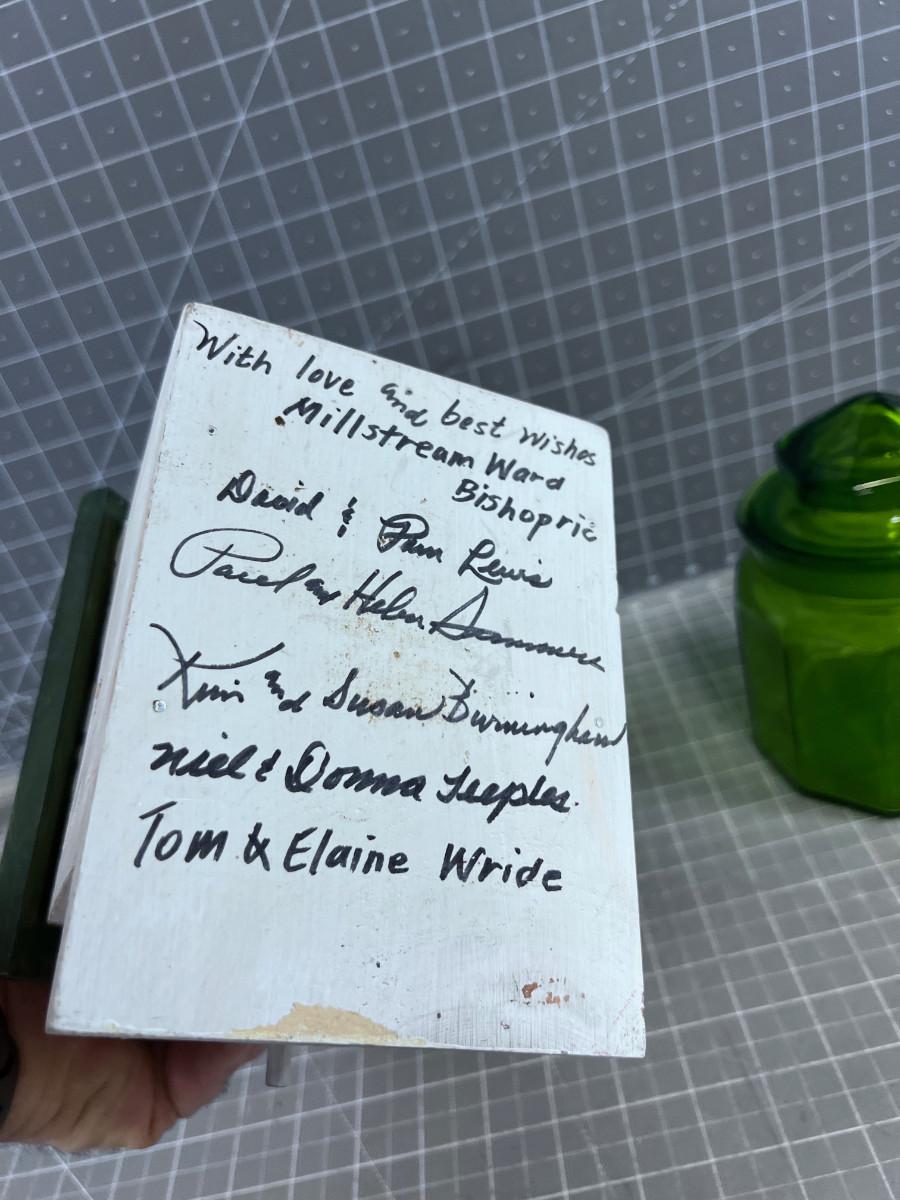 With love and best wishes
Millstream Ward
Bishopric
David & Pam Lewis
Paul and Helen
Kim and Susan Burningham
Niel & Donna Teeples.
Tom & Elaine Wride